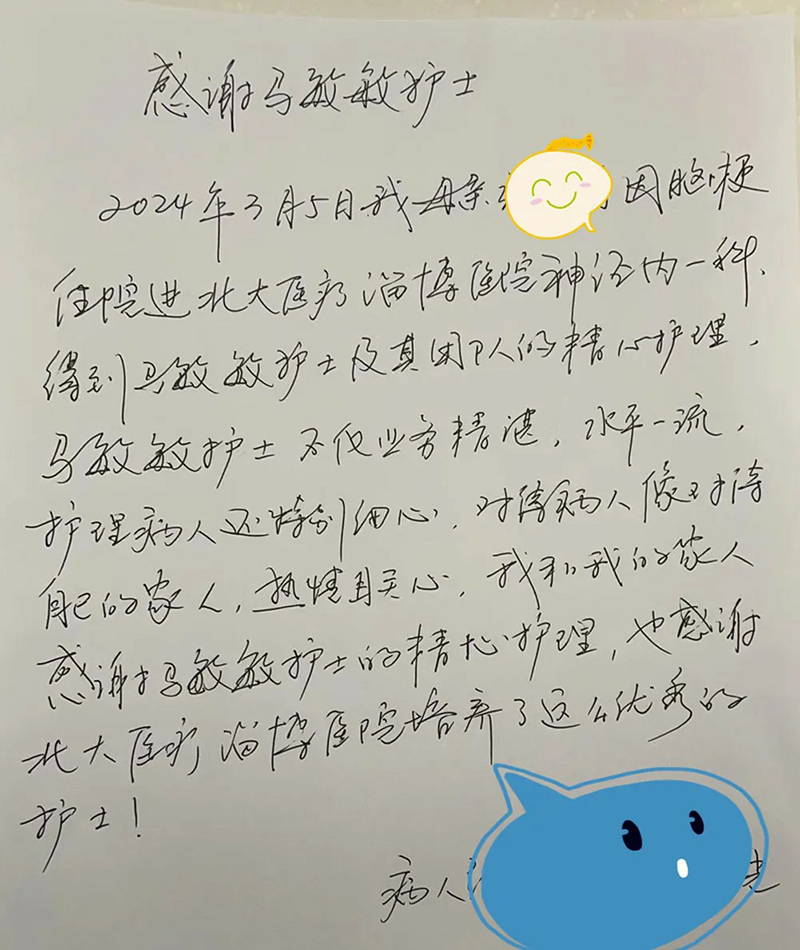 感谢马敏敏护士
2024年3月5日我母亲因脑梗
住院进北大医疗淄博医院神经内一科、
得到马敏敏护士及其团队人的精心护理，
马敏敏护士不仅业务精湛，水平一流，
护理病人还特别细心，对待病人像对待
自己的家人，热情且关心，我和我的家人
感谢马敏敏护士的精心护理，也感谢
北大医疗淄博医院培养了这么优秀的
护士！
病人